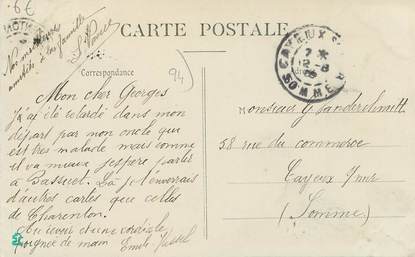 CARTE POSTALE
Correspondance
94
Nos meilleures
amitiés à ta famille
CAYEUX S MER
7 *
12-8
SOMME
Mon cher Georges
J'ai été retardé dans mon
départ par mon oncle qui
est très malade mais comme
il va mieux j'espère partir
à Là je t'enverrais
d'autres cartes que celles
de Charenton.
Au revoir et une cordiale
poignée de main Emile
Monsieur G
58 rue du commerce
Cayeux s/mer
(Somme)